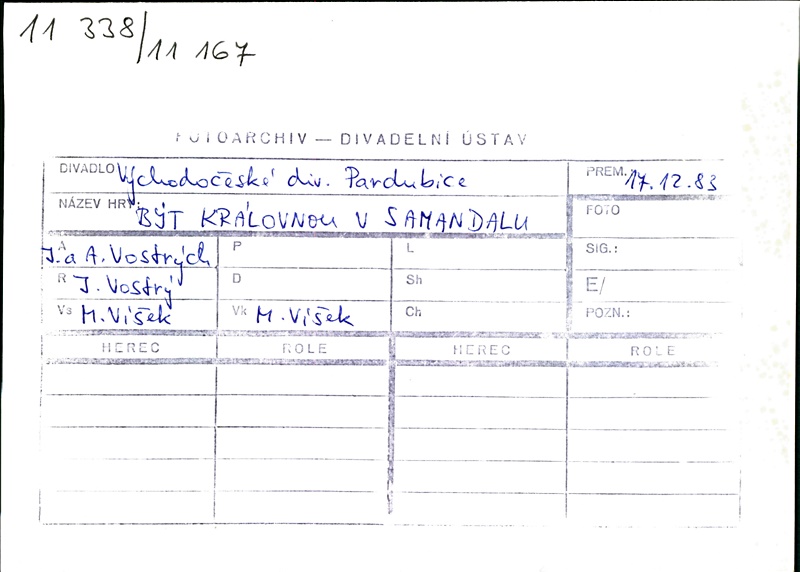 11 338/11 167
FOTOARCHIV — DIVADELNÍ ÚSTAV
DIVADLO Východočeské div. Pardubice
PREM. 17.12.83
NÁZEV HRY: BÝT KRÁLOVNOU V SAMANDALU
FOTO
A J. a A. Vostrých
P
L
SIG.:
R J. Vostrý
D
Sh
E/
Vs M. Víšek
Vk M. Víšek
Ch
POZN.:
HEREC ROLE HEREC ROLE